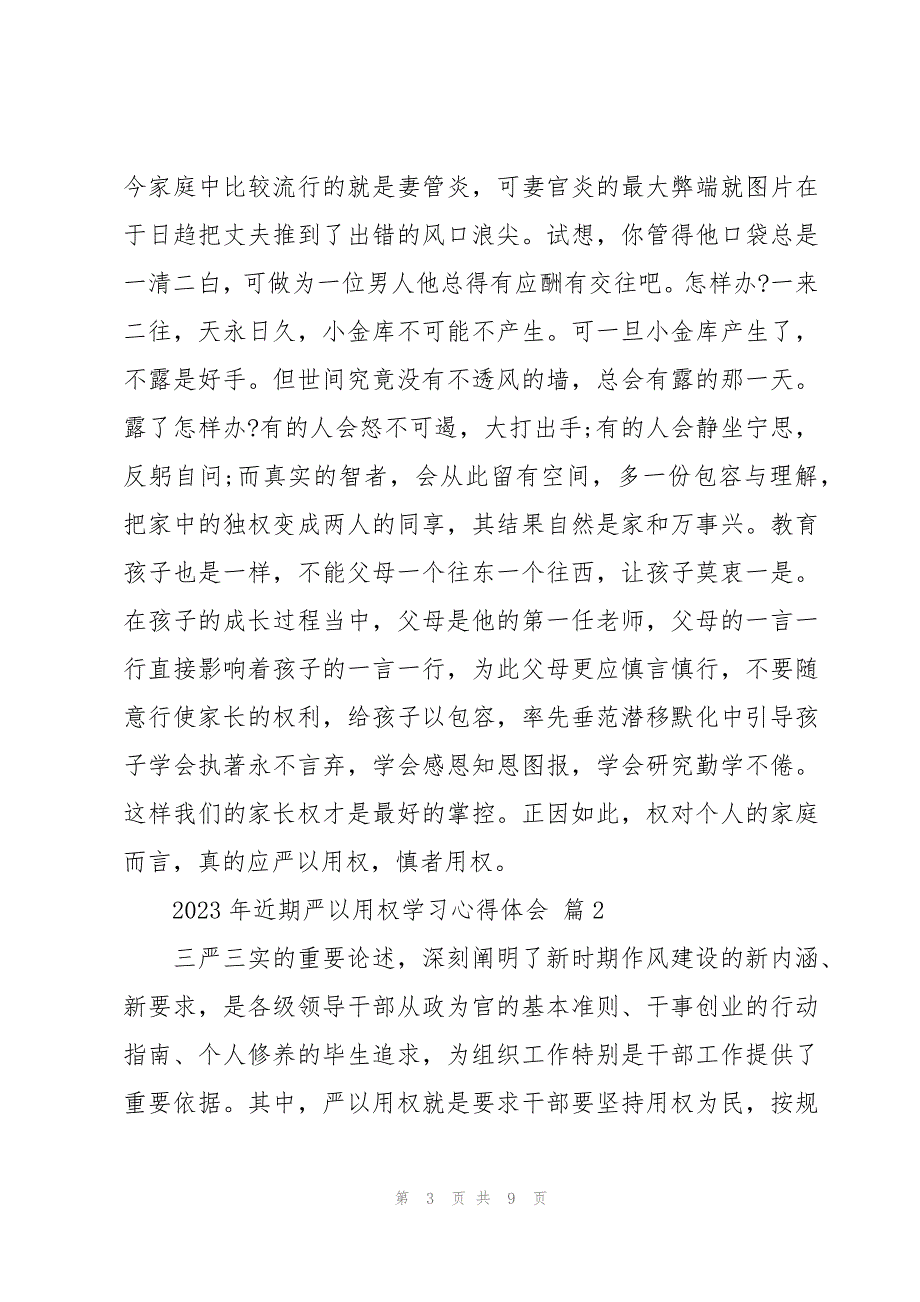 今家庭中比较流行的就是妻管炎，可妻官炎的最大弊端就图片在
于日趋把丈夫推到了出错的风口浪尖。试想，你管得他口袋总是
一清二白，可做为一位男人他总得有应酬有交往吧。怎样办?一来
二往，天永日久，小金库不可能不产生。可一旦小金库产生了，
不露是好手。但世间究竟没有不透风的墙，总会有露的那一天。
露了怎样办?有的人会怒不可遏，大打出手;有的人会静坐宁思，
反躬自问;而真实的智者，会从此留有空间，多一份包容与理解，
把家中的独权变成两人的同享，其结果自然是家和万事兴。教育
孩子也是一样，不能父母一个往东一个往西，让孩子莫衷一是。
在孩子的成长过程当中，父母是他的第一任老师，父母的一言一
行直接影响着孩子的一言一行，为此父母更应慎言慎行，不要随
意行使家长的权利，给孩子以包容，率先垂范潜移默化中引导孩
子学会执著永不言弃，学会感恩知恩图报，学会研究勤学不倦。
这样我们的家长权才是最好的掌控。正因如此，权对个人的家庭
而言，真的应严以用权，慎者用权。
2023 年近期严以用权学习心得体会 篇 2
三严三实的重要论述，深刻阐明了新时期作风建设的新内涵、
新要求，是各级领导干部从政为官的基本准则、干事创业的行动
指南、个人修养的毕生追求，为组织工作特别是干部工作提供了
重要依据。其中，严以用权就是要求干部要坚持用权为民，按规
第 3 页 共 9 页